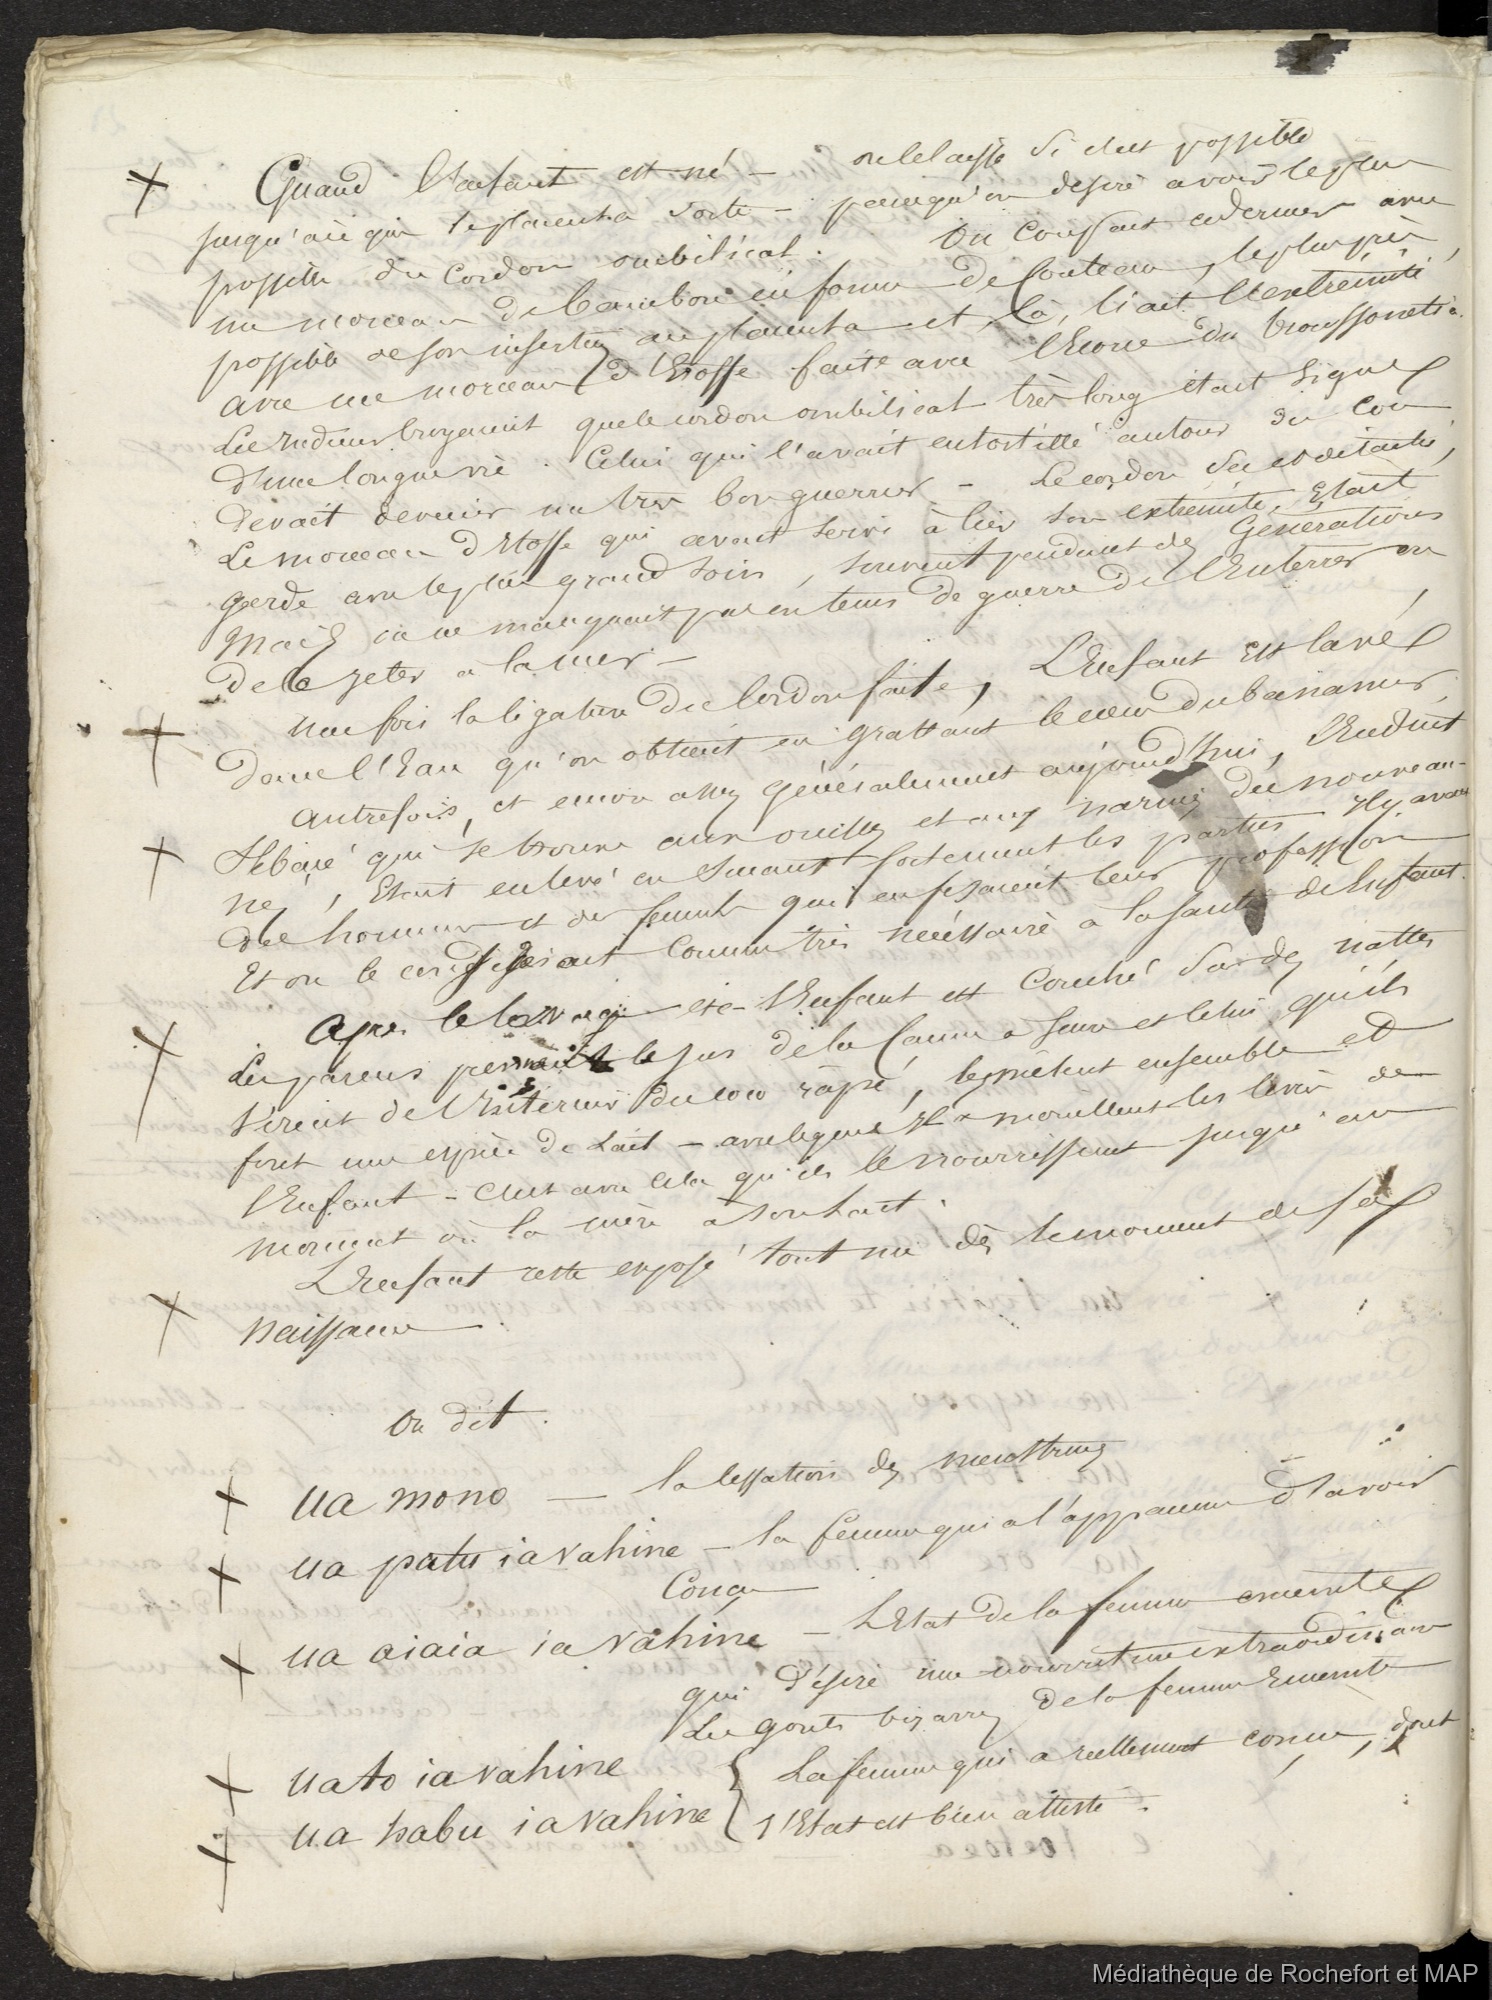 Quand l'Enfant est né - on le laisse si c'est possible
jusqu'à ce que le placenta sorte - parcequ'on desire avoir le plus
possible du cordon ombilical. On coupe cedernier avec
un morceau de bambou en forme de couteau, le plus près
possible de son insertion au placenta et là, liait l'extrémité
avec un morceau d'Etoffe faite avec l'Ecorce du broussonetia.
Les Indiens croyaient que le cordon ombilical très long était signe
d'une longue vie. Celui qui l'avait entortillé autour du cou
devait devenir un très bon guerrier - Le cordon sec et détaché,
le morceau d'Etoffe qui avait servi à lier son extrémité, Etait
gardé avec le plus grand soin, souvent pendant des Générations
Mais on ne manquait pas en tems de guerre de l'Enterrer ou
de le jeter à la mer -
Une fois la ligature du Cordon faite, L'Enfant Est lavé
dans l'Eau qu'on obtient en grattant le cœur du bananier,
autrefois, et encore assez généralement aujourd'hui, l'Enduit
sébacé qui se trouve aux oreilles et aux narines du nouveau-
né, Etait enlevé en suçant fortement les parties. Il y avait
des hommes et des femmes qui en fesaient leur profession
Et on le considérait comme très nécessaire à la santé de l'Enfant.
Après le lavage l'Enfant est Couché sur des nattes
Les parens le jus de la Canne à sucre et celui qu'ils
tirent de l'Intérieur du coco râpé, les mêlent ensemble et
font une espèce de Lait - avec lequel ils mouillent les lèvres de
l'Enfant - C'est avec cela qu'ils le nourrissent jusqu'au
moment où la mère a son lait.
L'Enfant reste exposé tout nu dès le moment de sa
naissance
On dit.
ua mono — la Cessation des menstrues
ua patu ia vahine - la femme qui a l'apparence d'avoir
Conçu
ua aiaia ia vahine - L'Etat de la femme enceinte
qui désire une nourriture extraordinaire
Les Gouts bizarres de la femme Enceinte
ua to ia vahine } La femme qui a réellement conçue, dont
ua hapu ia vahine } l'Etat est bien attesté.
Médiathèque de Rochefort et MAP